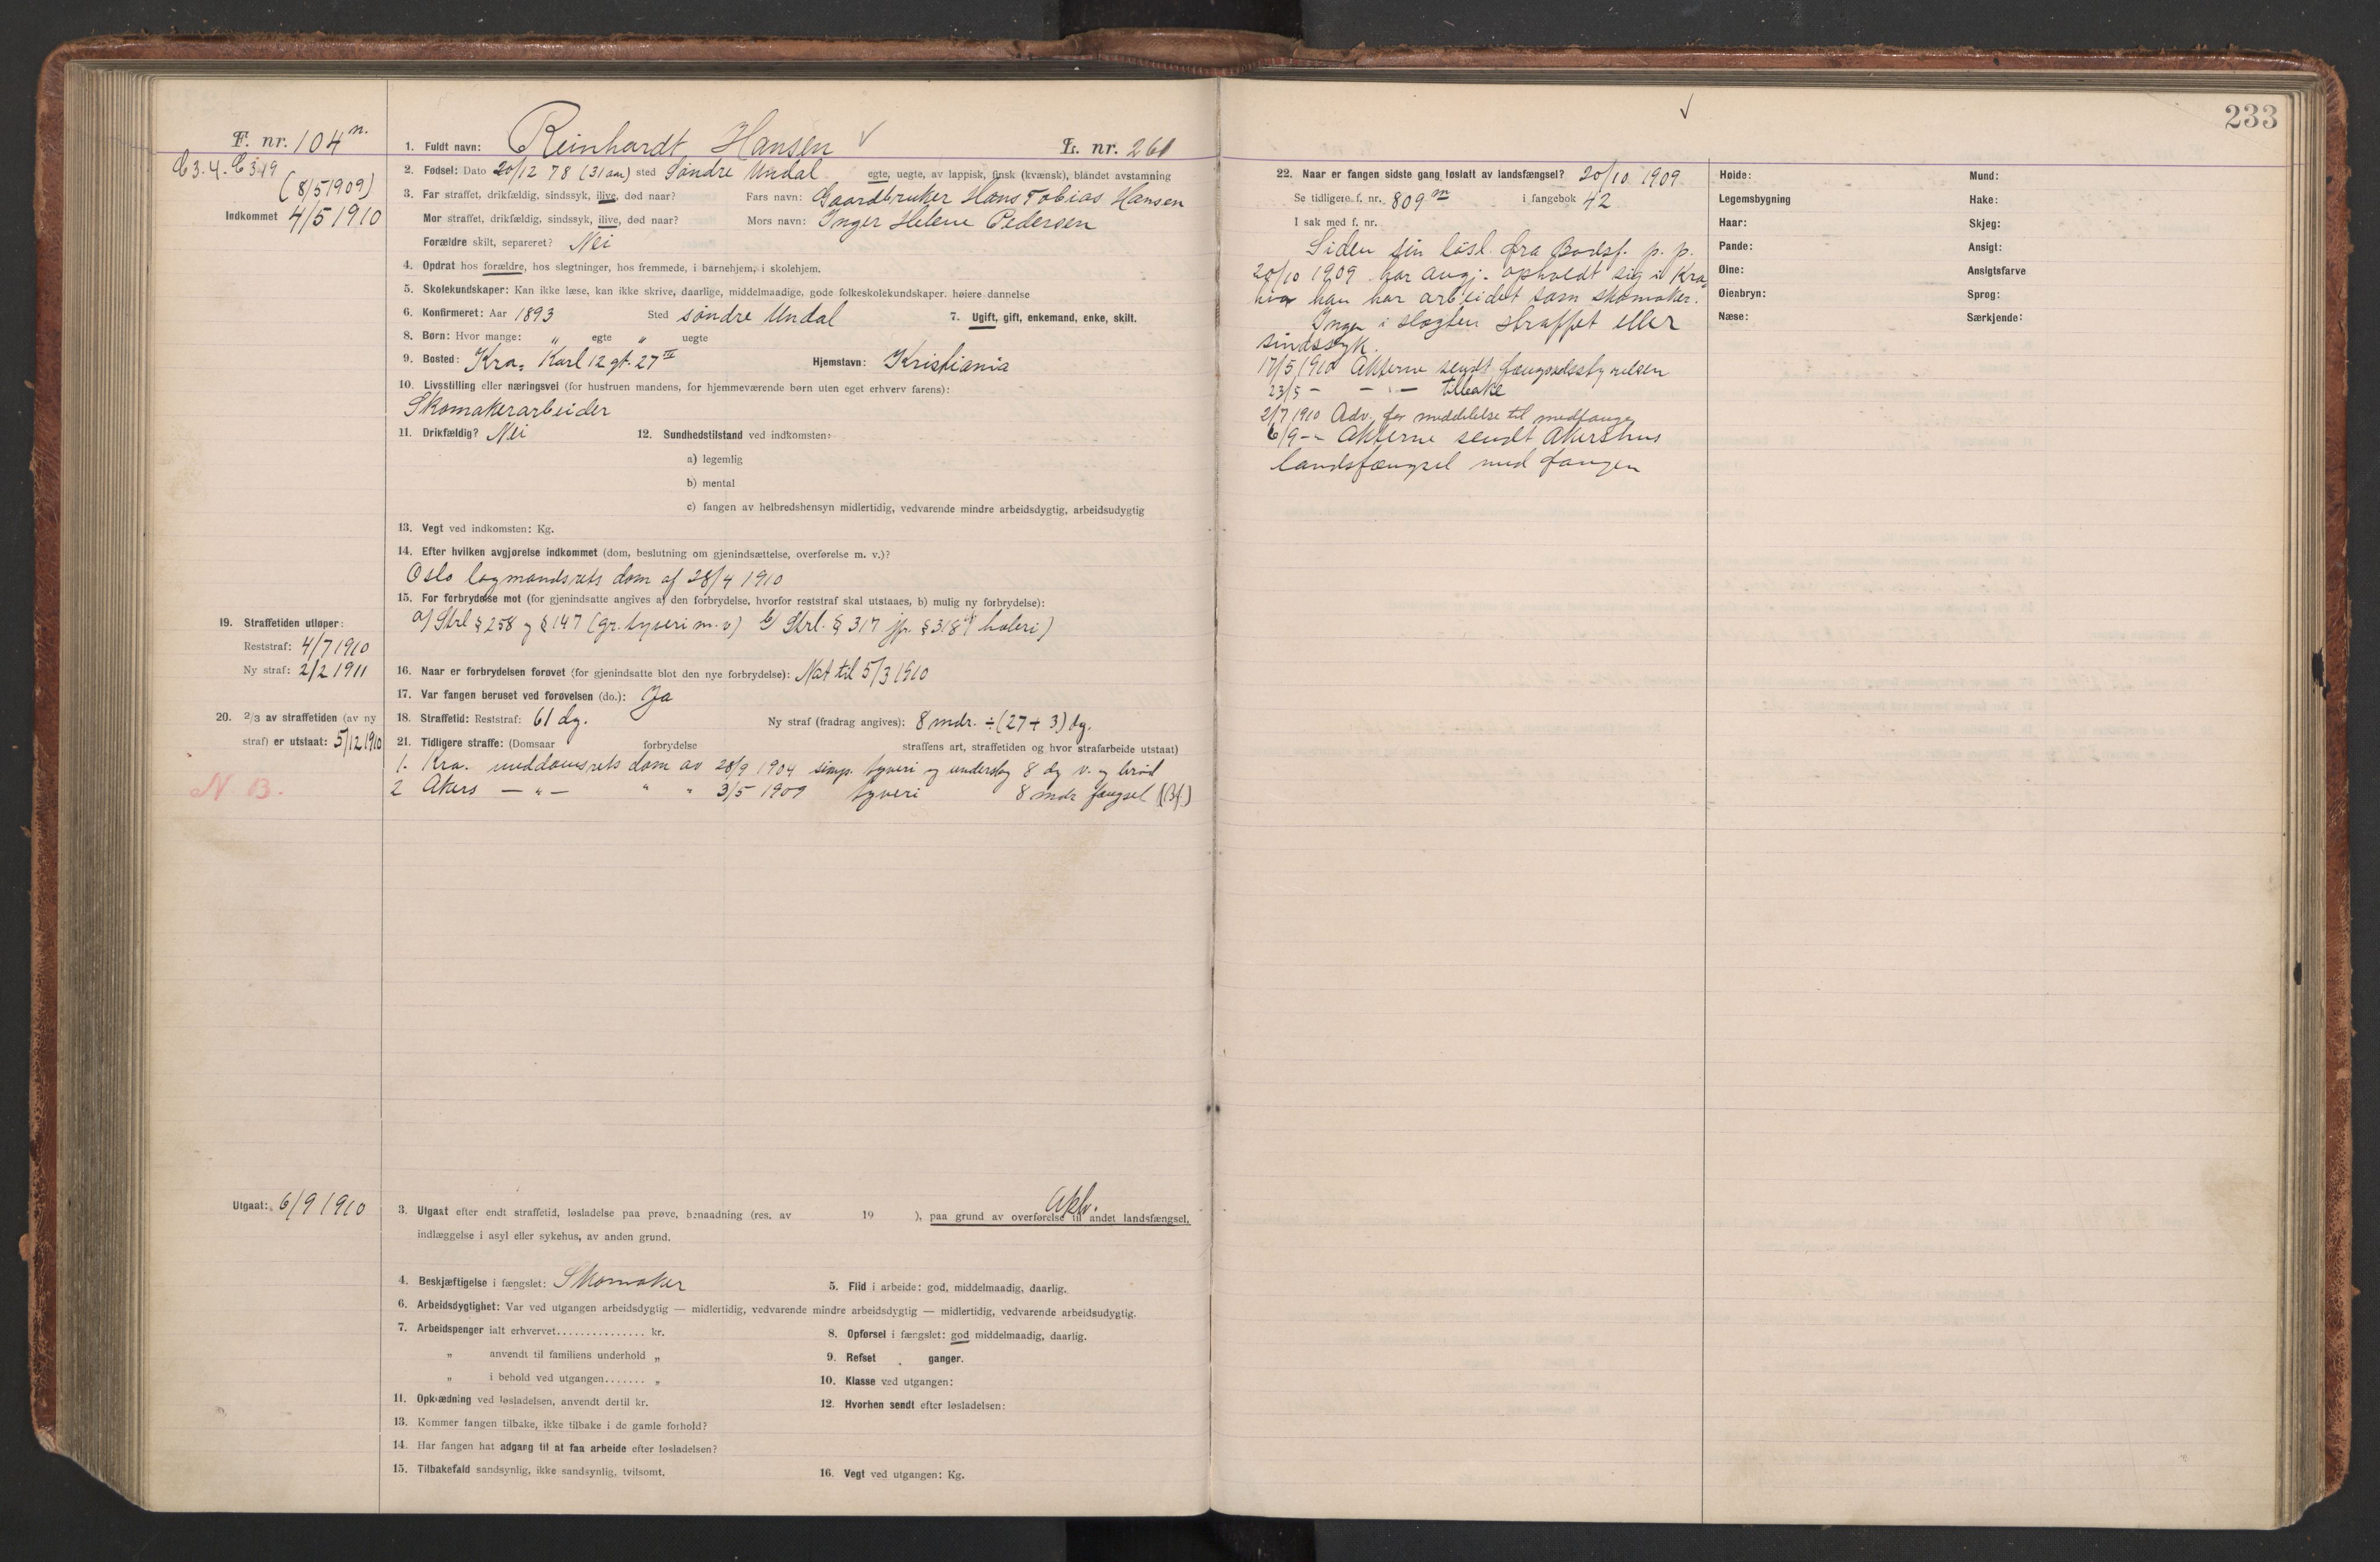 F. nr. 104 n.
C 3. 4. C 3.19
(8/5 1909)
Indkommet 4/5 1910
1. Fuldt navn: Reinhardt Hansen ✓ L. nr. 261
2. Fødsel: Dato 20/12 78 (31 aar) sted Søndre Undal egte, uegte, av lappisk, finsk (kvænsk), blandet avstamning
3. Far straffet, drikfældig, sindssyk, ilive, død naar? Fars navn: Gaardbruker Hans Tobias Hansen
Mor straffet, drikfældig, sindssyk, ilive, død naar? Mors navn: Inger Helene Pedersen
Forældre skilt, separeret? Nei
4. Opdrat hos forældre, hos slegtninger, hos fremmede, i barnehjem, i skolehjem.
5. Skolekundskaper: Kan ikke læse, kan ikke skrive, daarlige, middelmaadige, gode folkeskolekundskaper. høiere dannelse
6. Konfirmeret: Aar 1893 Sted søndre Undal 7. Ugift, gift, enkemand, enke, skilt.
8. Børn: Hvor mange: " egte " uegte
9. Bosted: Kra, Karl 12 gt. 27 III Hjemstavn: Kristiania
10. Livsstilling eller næringsvei (for hustruen mandens, for hjemmeværende børn uten eget erhverv farens):
Skomakerarbeider
11. Drikfældig? Nei 12. Sundhedstilstand ved indkomsten:
a) legemlig
b) mental
c) fangen av helbredshensyn midlertidig, vedvarende mindre arbeidsdygtig, arbeidsudygtig
13. Vegt ved indkomsten: Kg.
14. Efter hvilken avgjørelse indkommet (dom, beslutning om gjenindsættelse, overførelse m. v.)?
Oslo lagmandsrets dom af 28/4 1910
15. For forbrydelse mot (for gjenindsatte angives a) den forbrydelse, hvorfor reststraf skal utstaaes, b) mulig ny forbrydelse):
a) Strl § 258 og § 147 (gr. tyveri m. v) b) Strl. § 317 jfr. § 318 (hæleri)
19. Straffetiden utløper:
Reststraf: 4/7 1910
Ny straf: 2/2 1911
16. Naar er forbrydelsen forøvet (for gjenindsatte blot den nye forbrydelse): Nat til 5/3 1910
17. Var fangen beruset ved forøvelsen (do.): Ja
20. 2/3 av straffetiden (av ny
straf) er utstaat: 5/12 1910
18. Straffetid: Reststraf: 61 dg. Ny straf (fradrag angives): 8 mdr. ÷ (27 + 3) dg.
21. Tidligere straffe: (Domsaar forbrydelse straffens art, straffetiden og hvor strafarbeide utstaat)
1. Kra. meddomsrets dom av 28/9 1904 simp. tyveri og underslag 8 dg v. og brød
N B.
2 Akers — " — " " 3/5 1909 tyveri 8 mdr fængsel (Bf.)
Utgaat: 6/9 1910
Akh.
3. Utgaat efter endt straffetid, løsladelse paa prøve, benaadning (res. av 19 ), paa grund av overførelse til andet landsfængsel,
indlæggelse i asyl eller sykehus, av anden grund.
4. Beskjæftigelse i fængslet: Skomaker 5. Flid i arbeide: god, middelmaadig, daarlig.
6. Arbeidsdygtighet: Var ved utgangen arbeidsdygtig — midlertidig, vedvarende mindre arbeidsdygtig — midlertidig, vedvarende arbeidsudygtig.
7. Arbeidspenger ialt erhvervet............... kr. 8. Opførsel i fængslet: god middelmaadig, daarlig.
„ anvendt til familiens underhold „ 9. Refset ganger.
„ i behold ved utgangen....... „ 10. Klasse ved utgangen:
11. Opklædning ved løsladelsen, anvendt dertil kr. 12. Hvorhen sendt efter løsladelsen:
13. Kommer fangen tilbake, ikke tilbake i de gamle forhold?
14. Har fangen hat adgang til at faa arbeide efter løsladelsen?
15. Tilbakefald sandsynlig, ikke sandsynlig, tvilsomt. 16. Vegt ved utgangen: Kg.
✓
233
22. Naar er fangen sidste gang løslatt av landsfængsel? 20/10 1909
Se tidligere f. nr. 809 m i fangebok 42
I sak med f. nr.
Siden sin løsl. fra Bodsf. p. p.
20/10 1909 har angj. opholdt sig i Kra,
hvor han har arbeidet som skomaker.
Ingen i slægten straffet eller
sindssyk.
17/5 1910 Akterne sendt fængselsstyrelsen
23/5 — — " — tilbake
2/7 1910 Adv. for meddelelse til medfange
6/9 – " Akterne sendt Akershus
landsfængsel med fangen
Høide: Mund:
Legemsbygning Hake:
Haar: Skjeg:
Pande: Ansigt:
Øine: Ansigtsfarve
Øienbryn: Sprog:
Næse: Særkjende: